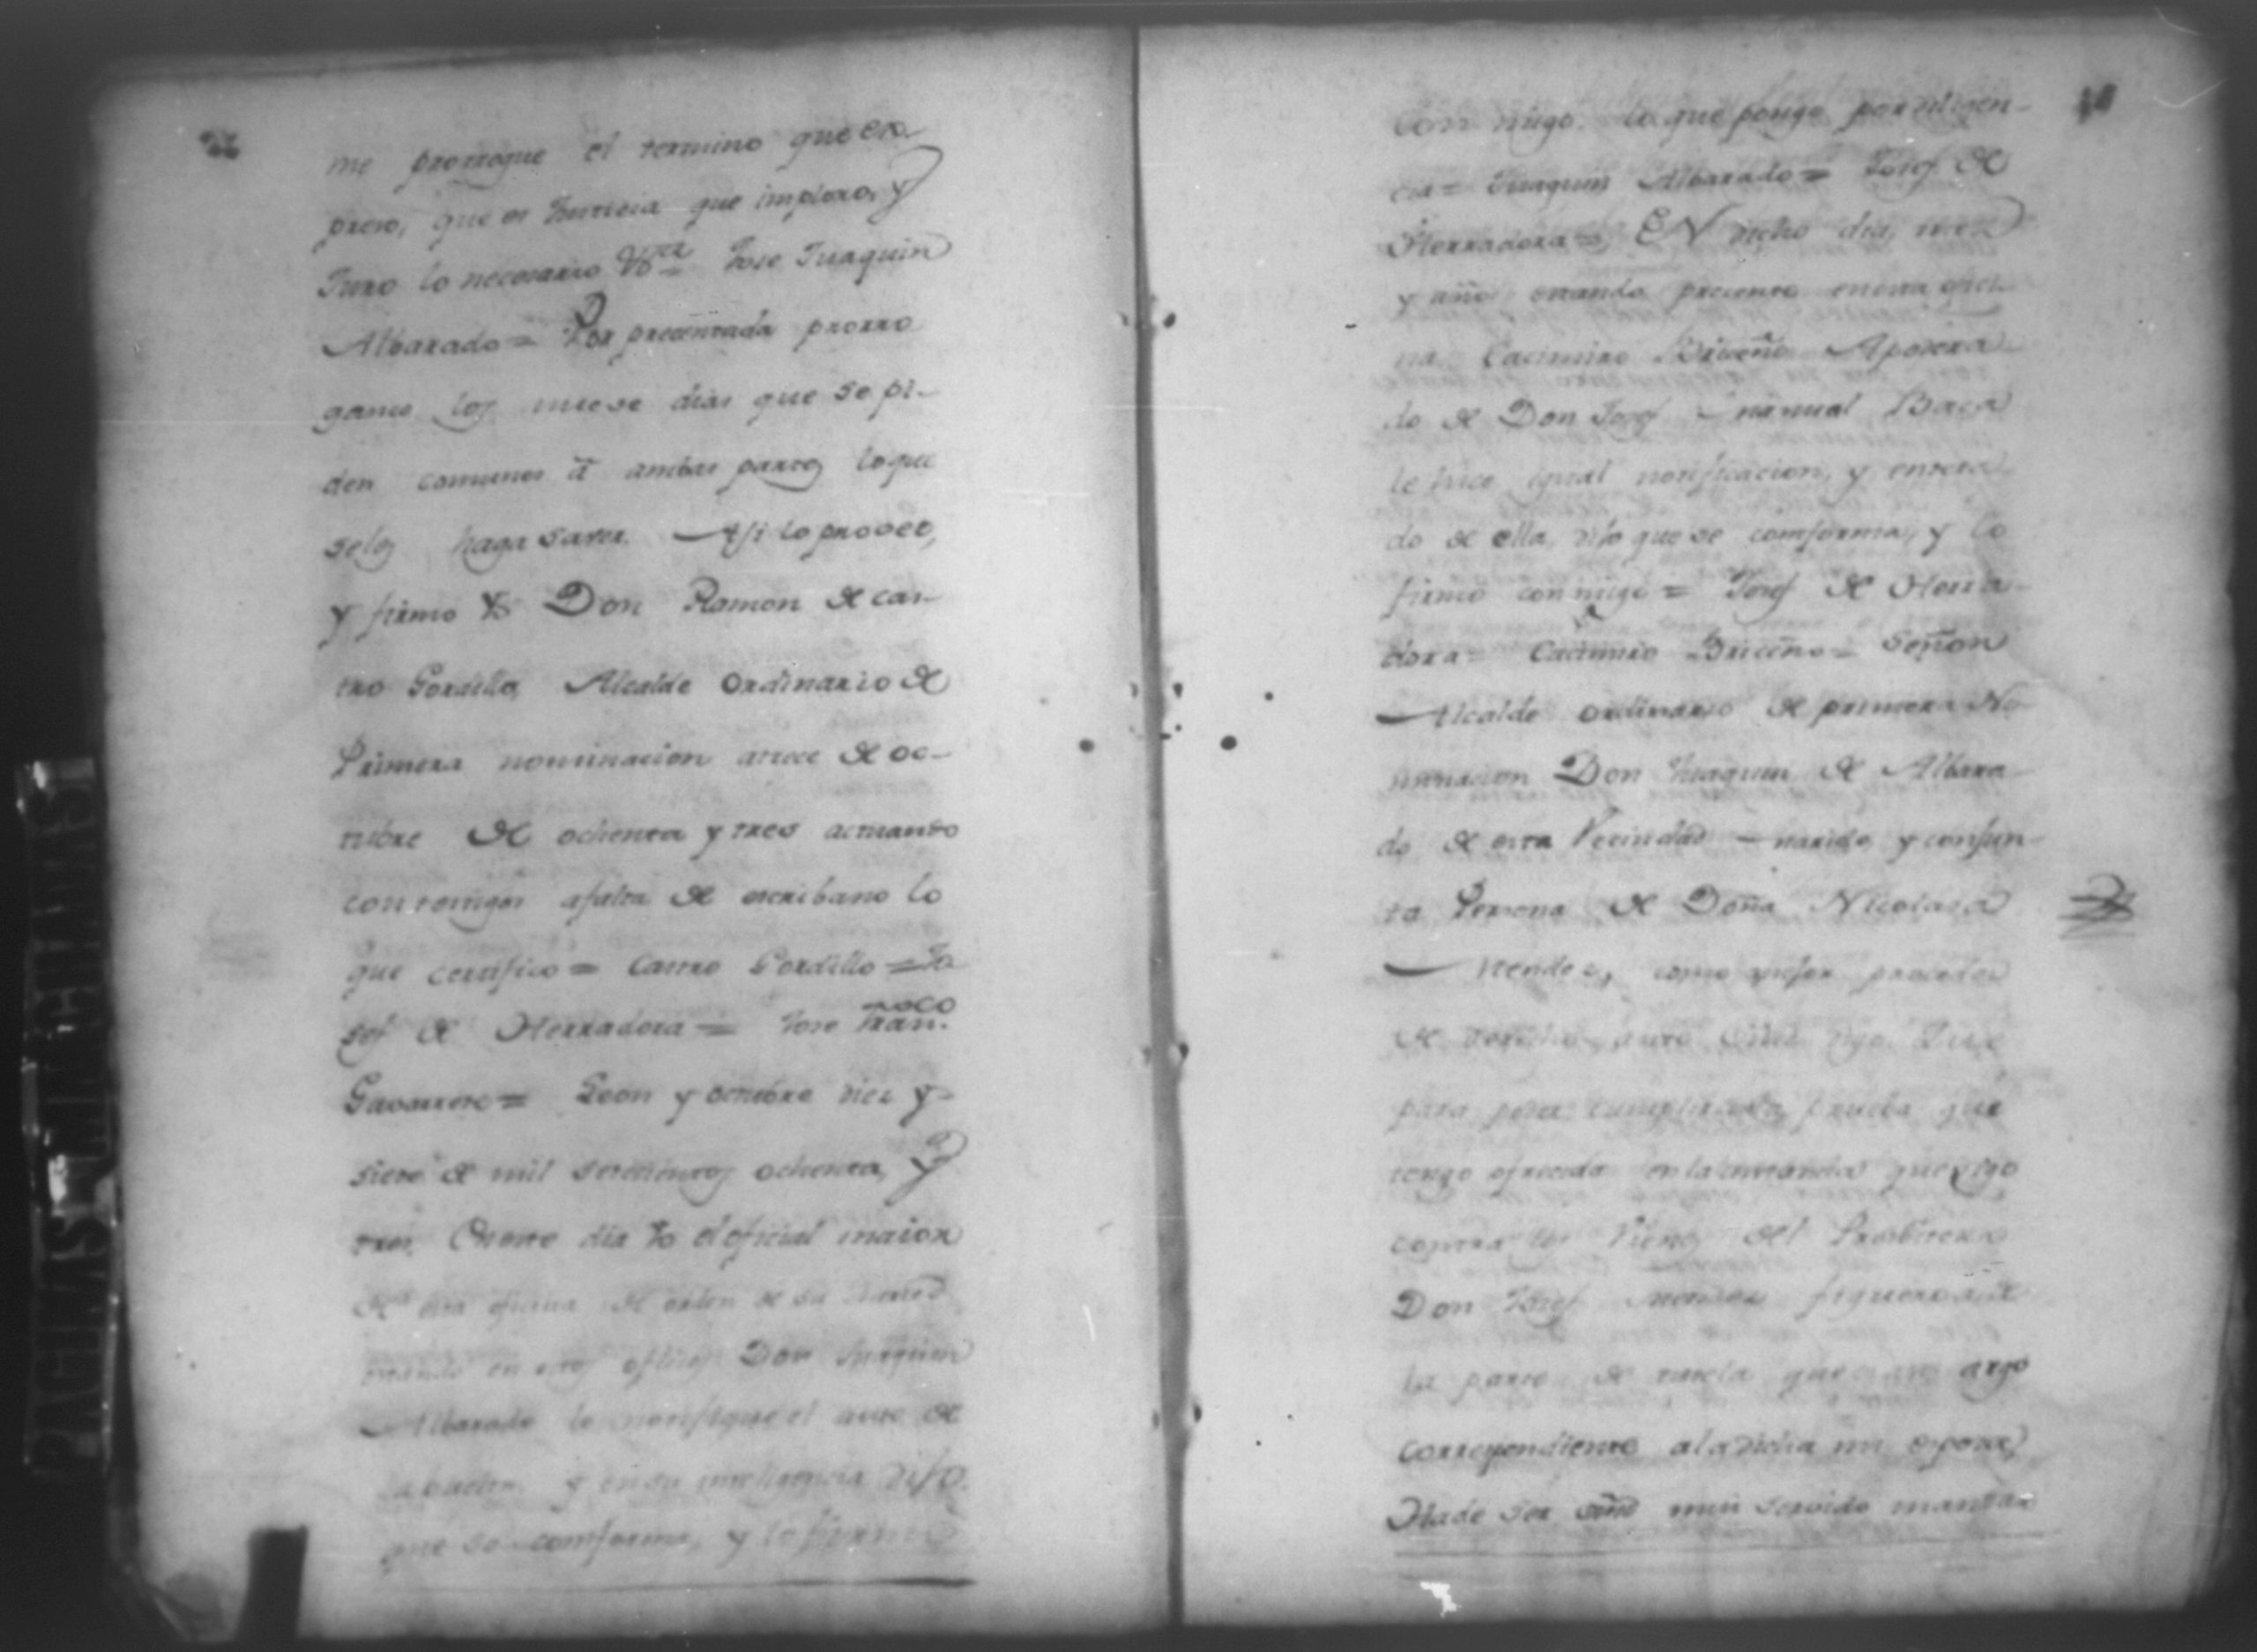 me prorrogue el termino que ex-
preso, que es Justicia que imploro, y
Juro lo necesario Vtra= Jose Juaquin
Albarado= Por precentada prorro
ganse los nueve dias que se pi-
den comunes â ambas partes loque
seles haga saver. Asi lo proveo,
y firmo Yo Don Ramon de cas-
tro Gordillo, Alcalde ordinario de
Primera nominacion atrece de oc-
tubre de ochenta y tres actuando
con testigos afalta de escribano lo
que certifico= Castro Gordillo= Jo
sef de Herradora= Jose Fran.co
Gavarrete= Leon y octubre diez y
siete de mil setecientos ochenta, y
tres. En este dia Yo el oficial maior
de esta oficina de orden de su merced
estando en este oficio Don Juaquin
Albarado le notifique el auto de
la buelta y en su inteligencia dijo
que se comforma, y lo firmo
con migo. lo que pongo por diligen-
cia= Juaquin Albarado= Josef de
Herradora= EN dicho dia, mes
y año estando precente en esta ofici-
na Cacimiro Briceño Apodera
do de Don Josef manual Baca
le hice igual notificacion, y entera-
do de ella dijo que se comforma, y lo
firmó con migo= Josef de Herra
dora= Cacimiro Briceño= Señor
Alcalde ordinario de primera No
minacion Don Juaquin de Albara
do de esta Vecindad marido y conjun
ta Persona de Doña Nicolasa
Mendes, como mejor proceda
de derecho ante Vmd digo: Que
para poder cumplir la prueba que
tengo ofrecida en la instancia que sigo
contra los Vienes del Presbitero
Don Josef Mendes figueroa, de
la parte de tutela que hace argo
correspondiente ala dicha mi esposa,
Hade ser Vmd mui servido mandar